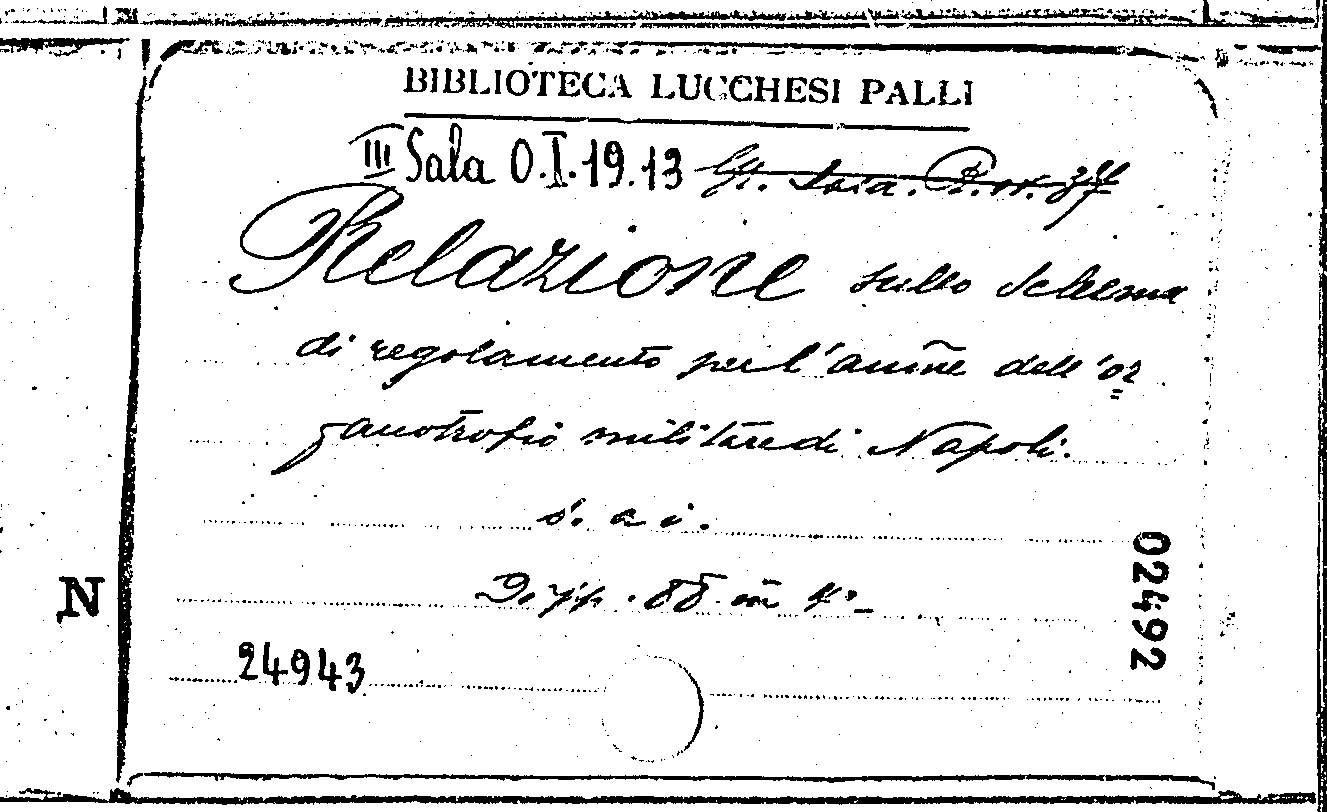 BIBLIOTECA LUCCHESI PALLI
III Sala O.I.19.13
Relazione sullo schema
di regolamento per l'amm̃e dell'or
fanotrofio militare di Napoli.
s. a. i.
Di pp. 88 in 4°
24943
N
02492